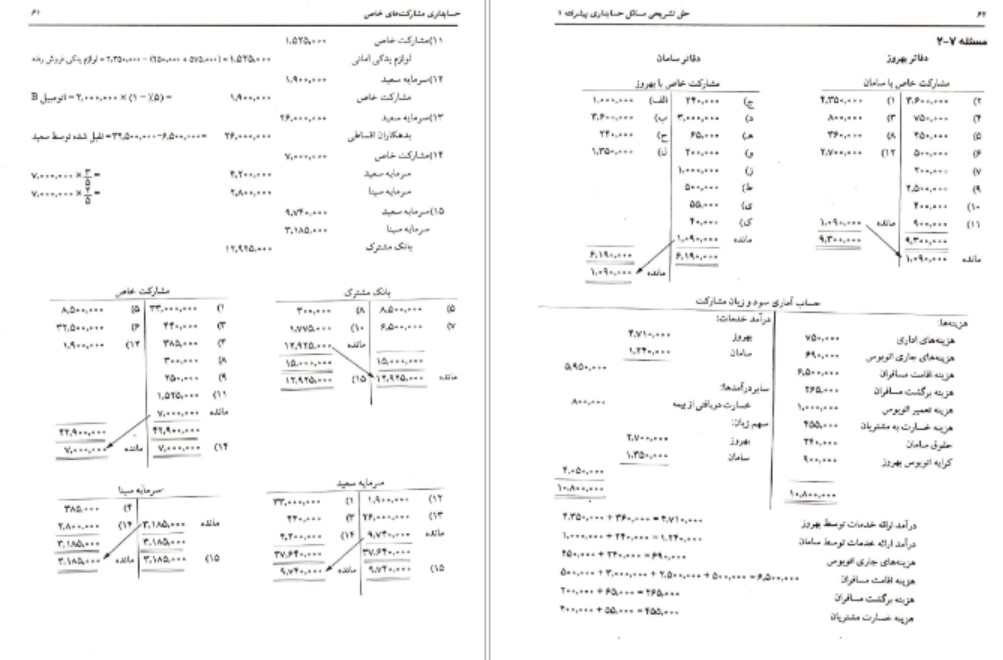 حسابداری مشارکت‌های خاص ۶۱
۱۱)مشارکت خاص ۱,۵۲۵,۰۰۰
لوازم یدکی امانی ۱,۵۲۵,۰۰۰
۱۲)سرمایه سعید ۱,۹۰۰,۰۰۰
مشارکت خاص ۱,۹۰۰,۰۰۰ = (۵٪ – ۱) × ۲,۰۰۰,۰۰۰ = اتومبیل B
۱۳)سرمایه سعید ۲۶,۰۰۰,۰۰۰
بدهکاران اقساطی ۲۶,۰۰۰,۰۰۰ = ۳۲,۵۰۰,۰۰۰–۶,۵۰۰,۰۰۰ = تقبل شده توسط سعید
۱۴)مشارکت خاص ۷,۰۰۰,۰۰۰
سرمایه سعید ۴,۲۰۰,۰۰۰ = ۷,۰۰۰,۰۰۰ × ۳/۵
سرمایه سینا ۲,۸۰۰,۰۰۰ = ۷,۰۰۰,۰۰۰ × ۲/۵
۱۵)سرمایه سعید ۹,۷۴۰,۰۰۰
سرمایه سینا ۳,۱۸۵,۰۰۰
بانک مشترک ۱۲,۹۲۵,۰۰۰
بانک مشترک
۵) ۸,۵۰۰,۰۰۰ ۸) ۳۰۰,۰۰۰
۷) ۶,۵۰۰,۰۰۰ ۱۰) ۱,۷۷۵,۰۰۰
مانده ۱۲,۹۲۵,۰۰۰
۱۵,۰۰۰,۰۰۰ ۱۵,۰۰۰,۰۰۰
مانده ۱۲,۹۲۵,۰۰۰ ۱۵) ۱۲,۹۲۵,۰۰۰
مشارکت خاص
۱) ۳۳,۰۰۰,۰۰۰ ۵) ۸,۵۰۰,۰۰۰
۳) ۴۴۰,۰۰۰ ۶) ۳۲,۵۰۰,۰۰۰
۴) ۳۸۵,۰۰۰ ۱۲) ۱,۹۰۰,۰۰۰
۸) ۳۰۰,۰۰۰
۹) ۲۵۰,۰۰۰
۱۱) ۱,۵۲۵,۰۰۰
مانده ۷,۰۰۰,۰۰۰
۴۲,۹۰۰,۰۰۰ ۴۲,۹۰۰,۰۰۰
۱۴) ۷,۰۰۰,۰۰۰ مانده ۷,۰۰۰,۰۰۰
سرمایه سعید
۱۲) ۱,۹۰۰,۰۰۰ ۱) ۳۳,۰۰۰,۰۰۰
۱۳) ۲۶,۰۰۰,۰۰۰ ۳) ۴۴۰,۰۰۰
مانده ۹,۷۴۰,۰۰۰ ۱۴) ۴,۲۰۰,۰۰۰
۳۷,۶۴۰,۰۰۰ ۳۷,۶۴۰,۰۰۰
۱۵) ۹,۷۴۰,۰۰۰ مانده ۹,۷۴۰,۰۰۰
سرمایه سینا
۴) ۳۸۵,۰۰۰
مانده ۳,۱۸۵,۰۰۰ ۱۴) ۲,۸۰۰,۰۰۰
۳,۱۸۵,۰۰۰ ۳,۱۸۵,۰۰۰
۱۵) ۳,۱۸۵,۰۰۰ مانده ۳,۱۸۵,۰۰۰
۶۲ حل تشریحی مسائل حسابداری پیشرفته ۱
مسئله ۷-۲
دفاتر بهروز
مشارکت خاص با سامان
۲) ۳,۶۰۰,۰۰۰ ۱) ۴,۳۵۰,۰۰۰
۴) ۷۵۰,۰۰۰ ۳) ۸۰۰,۰۰۰
۵) ۴۵۰,۰۰۰ ۸) ۳۶۰,۰۰۰
۶) ۵۰۰,۰۰۰ ۱۲) ۲,۷۰۰,۰۰۰
۷) ۲۰۰,۰۰۰
۹) ۲,۵۰۰,۰۰۰
۱۰) ۴۰۰,۰۰۰
۱۱) ۹۰۰,۰۰۰ مانده ۱,۰۹۰,۰۰۰
۹,۳۰۰,۰۰۰ ۹,۳۰۰,۰۰۰
مانده ۱,۰۹۰,۰۰۰
دفاتر سامان
مشارکت خاص با بهروز
ج) ۲۴۰,۰۰۰ الف) ۱,۰۰۰,۰۰۰
د) ۳,۰۰۰,۰۰۰ ب) ۳,۶۰۰,۰۰۰
هـ) ۶۵,۰۰۰ ح) ۲۴۰,۰۰۰
و) ۲۰۰,۰۰۰ ل) ۱,۳۵۰,۰۰۰
ز) ۱,۰۰۰,۰۰۰
ط) ۵۰۰,۰۰۰
ی) ۵۵,۰۰۰
ک) ۴۰,۰۰۰
مانده ۱,۰۹۰,۰۰۰
۶,۱۹۰,۰۰۰ ۶,۱۹۰,۰۰۰
مانده ۱,۰۹۰,۰۰۰
حساب آماری سود و زیان مشارکت
هزینه‌ها:
هزینه‌های اداری ۷۵۰,۰۰۰
هزینه‌های جاری اتوبوس ۶۹۰,۰۰۰
هزینه اقامت مسافران ۶,۵۰۰,۰۰۰
هزینه برگشت مسافران ۲۶۵,۰۰۰
هزینه تعمیر اتوبوس ۱,۰۰۰,۰۰۰
هزینه خسارت به مشتریان ۴۵۵,۰۰۰
حقوق سامان ۲۴۰,۰۰۰
کرایه اتوبوس بهروز ۹۰۰,۰۰۰
۱۰,۸۰۰,۰۰۰
درآمد خدمات:
بهروز ۴,۷۱۰,۰۰۰
سامان ۱,۲۴۰,۰۰۰
۵,۹۵۰,۰۰۰
سایر درآمدها:
خسارت دریافتی از بیمه ۸۰۰,۰۰۰
سهم زیان:
بهروز ۲,۷۰۰,۰۰۰
سامان ۱,۳۵۰,۰۰۰
۴,۰۵۰,۰۰۰
۱۰,۸۰۰,۰۰۰
درآمد ارائه خدمات توسط بهروز ۴,۳۵۰,۰۰۰ + ۳۶۰,۰۰۰ = ۴,۷۱۰,۰۰۰
درآمد ارائه خدمات توسط سامان ۱,۰۰۰,۰۰۰ + ۲۴۰,۰۰۰ = ۱,۲۴۰,۰۰۰
هزینه‌های جاری اتوبوس ۴۵۰,۰۰۰ + ۲۴۰,۰۰۰ = ۶۹۰,۰۰۰
هزینه اقامت مسافران ۵۰۰,۰۰۰ + ۳,۰۰۰,۰۰۰ + ۲,۵۰۰,۰۰۰ + ۵۰۰,۰۰۰ = ۶,۵۰۰,۰۰۰
هزینه برگشت مسافران ۲۰۰,۰۰۰ + ۶۵,۰۰۰ = ۲۶۵,۰۰۰
هزینه خسارت مشتریان ۴۰۰,۰۰۰ + ۵۵,۰۰۰ = ۴۵۵,۰۰۰